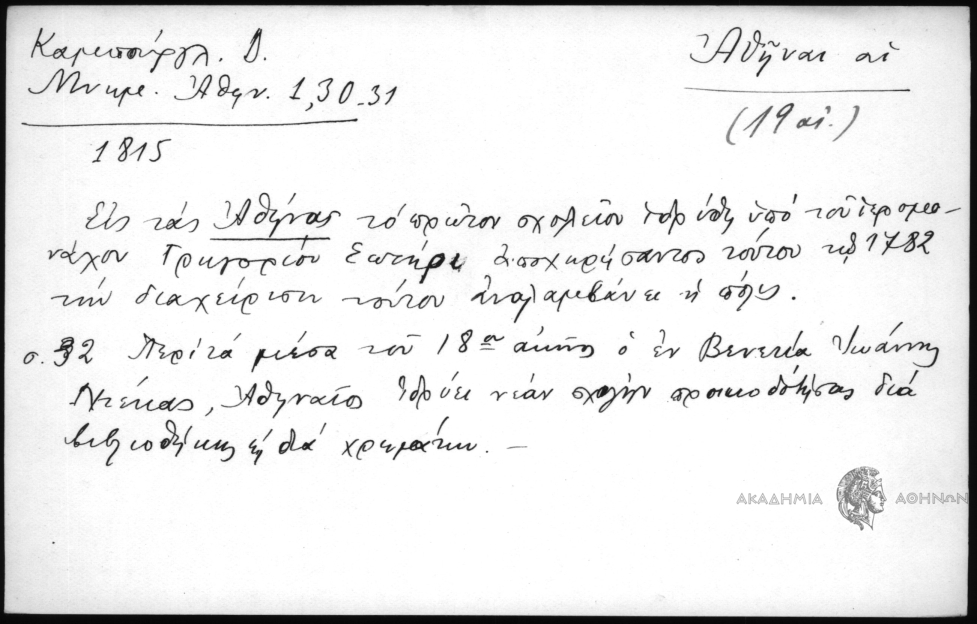 Καμπούργλ. Δ.
Μνημ. Ἀθην. 1, 30-31
1815
Ἀθῆναι αἱ
(19 αἰ.)
Εἰς τάς Ἀθήνας τό πρῶτον σχολεῖον ἱδρύθη ὑπό τοῦ ἱερομο-
νάχου Γρηγορίου Σωτήρη ἀποχωρήσαντος τούτου τῷ 1782
τήν διαχείρισιν τούτου ἀναλαμβάνει ἡ πόλις.
σ. 32 Περί τά μέσα τοῦ 18ου αἰῶνος ὁ ἐν Βενετίᾳ Ἰωάννης
Ντέκας, Ἀθηναῖος ἱδρύει νέαν σχολήν προικοδοτήσας διά
βιβλιοθήκης καί διά χρημάτων. –
ΑΚΑΔΗΜΙΑ ΑΘΗΝΩΝ